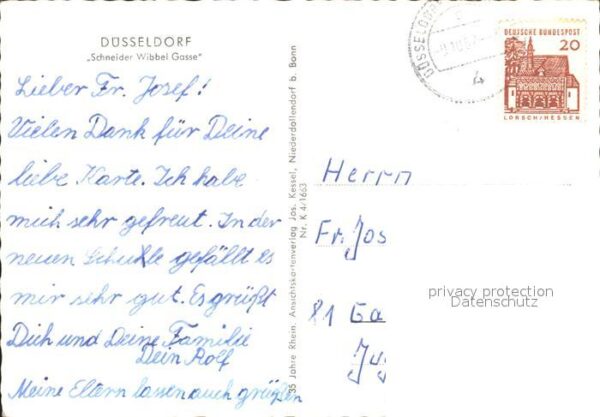 DÜSSELDORF
„Schneider Wibbel Gasse"
Lieber Fr. Josef!
Vielen Dank für Deine
liebe Karte. Ich habe
mich sehr gefreut. In der
neuen Schule gefällt es
mir sehr gut. Es grüßt
Dich und Deine Familie
Dein Rolf
Meine Eltern lassen auch grüßen
35 Jahre Rhein. Ansichtskartenverlag Jos. Kessel, Niederdollendorf b. Bonn
Nr. K 4/1663
DÜSSELDO
4
DEUTSCHE BUNDESPOST
20
LORSCH/HESSEN
Herrn
Fr. Jos
81 Ga
privacy protection
Datenschutz